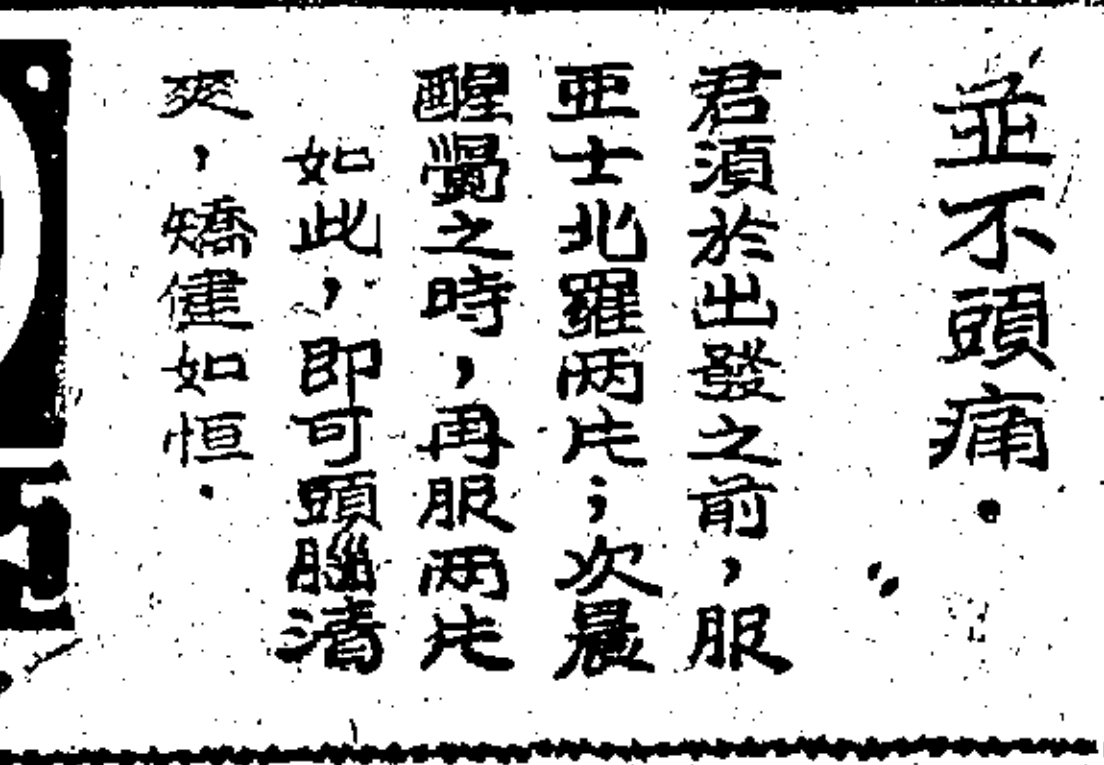 並不頭痛.
君須於出發之前，服
亞士北羅两片；次晨
醒覺之時，再服两片
如此，即可頭腦清
爽，矯健如恒.